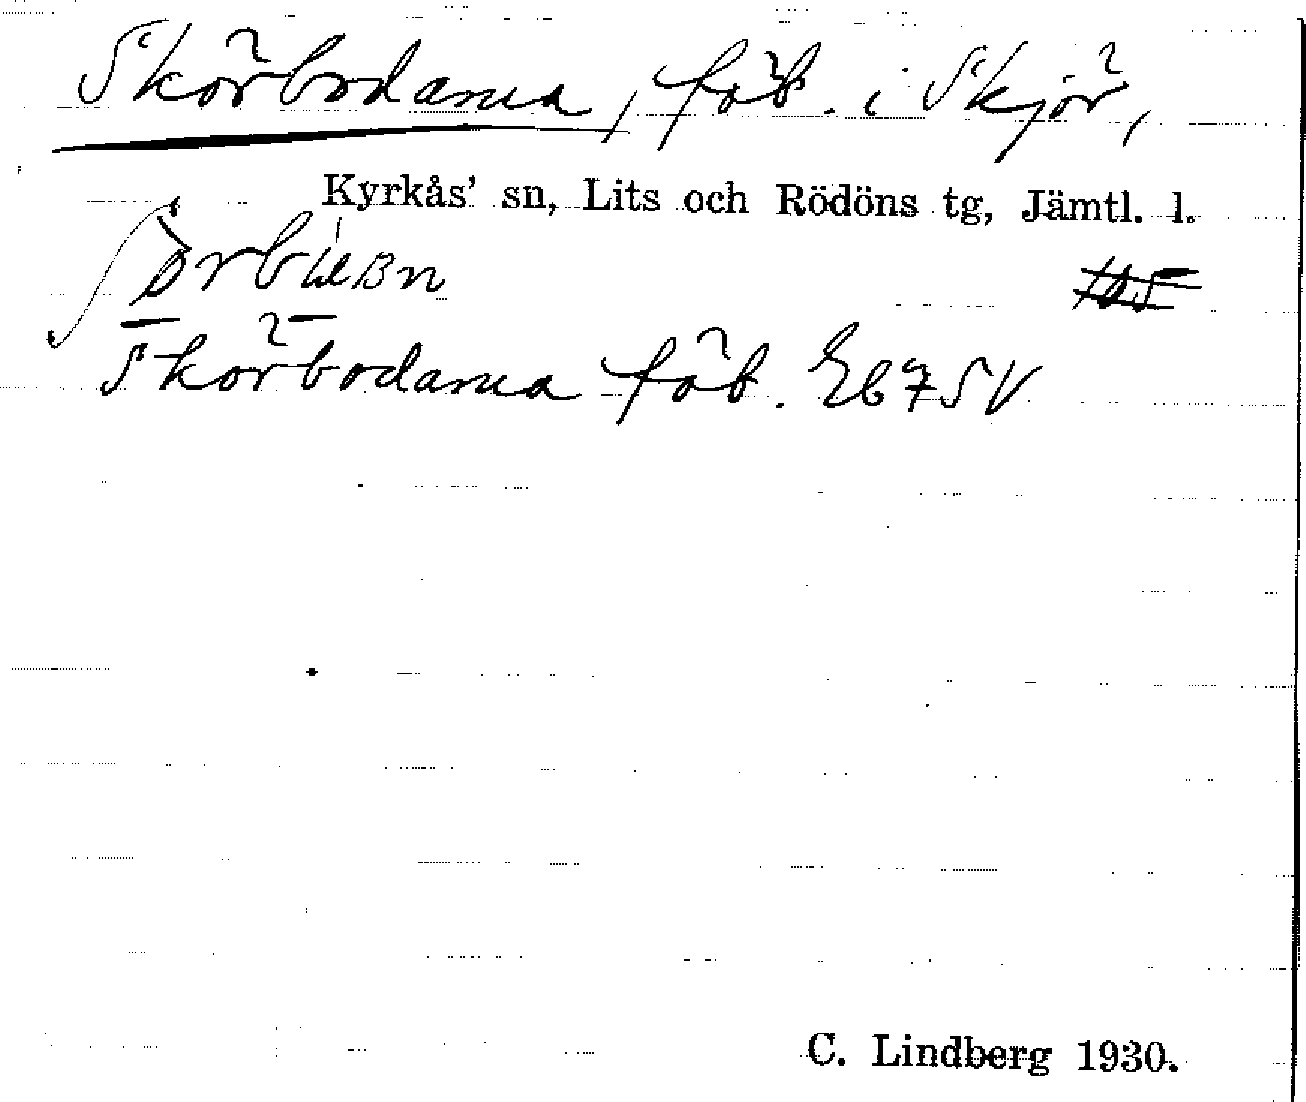 Skörbodarna, fäb. i Skjör,
Kyrkås' sn, Lits och Rödöns tg, Jämtl. l.
Skörbodarna fäb. Eb 7 SV
C. Lindberg 1930.